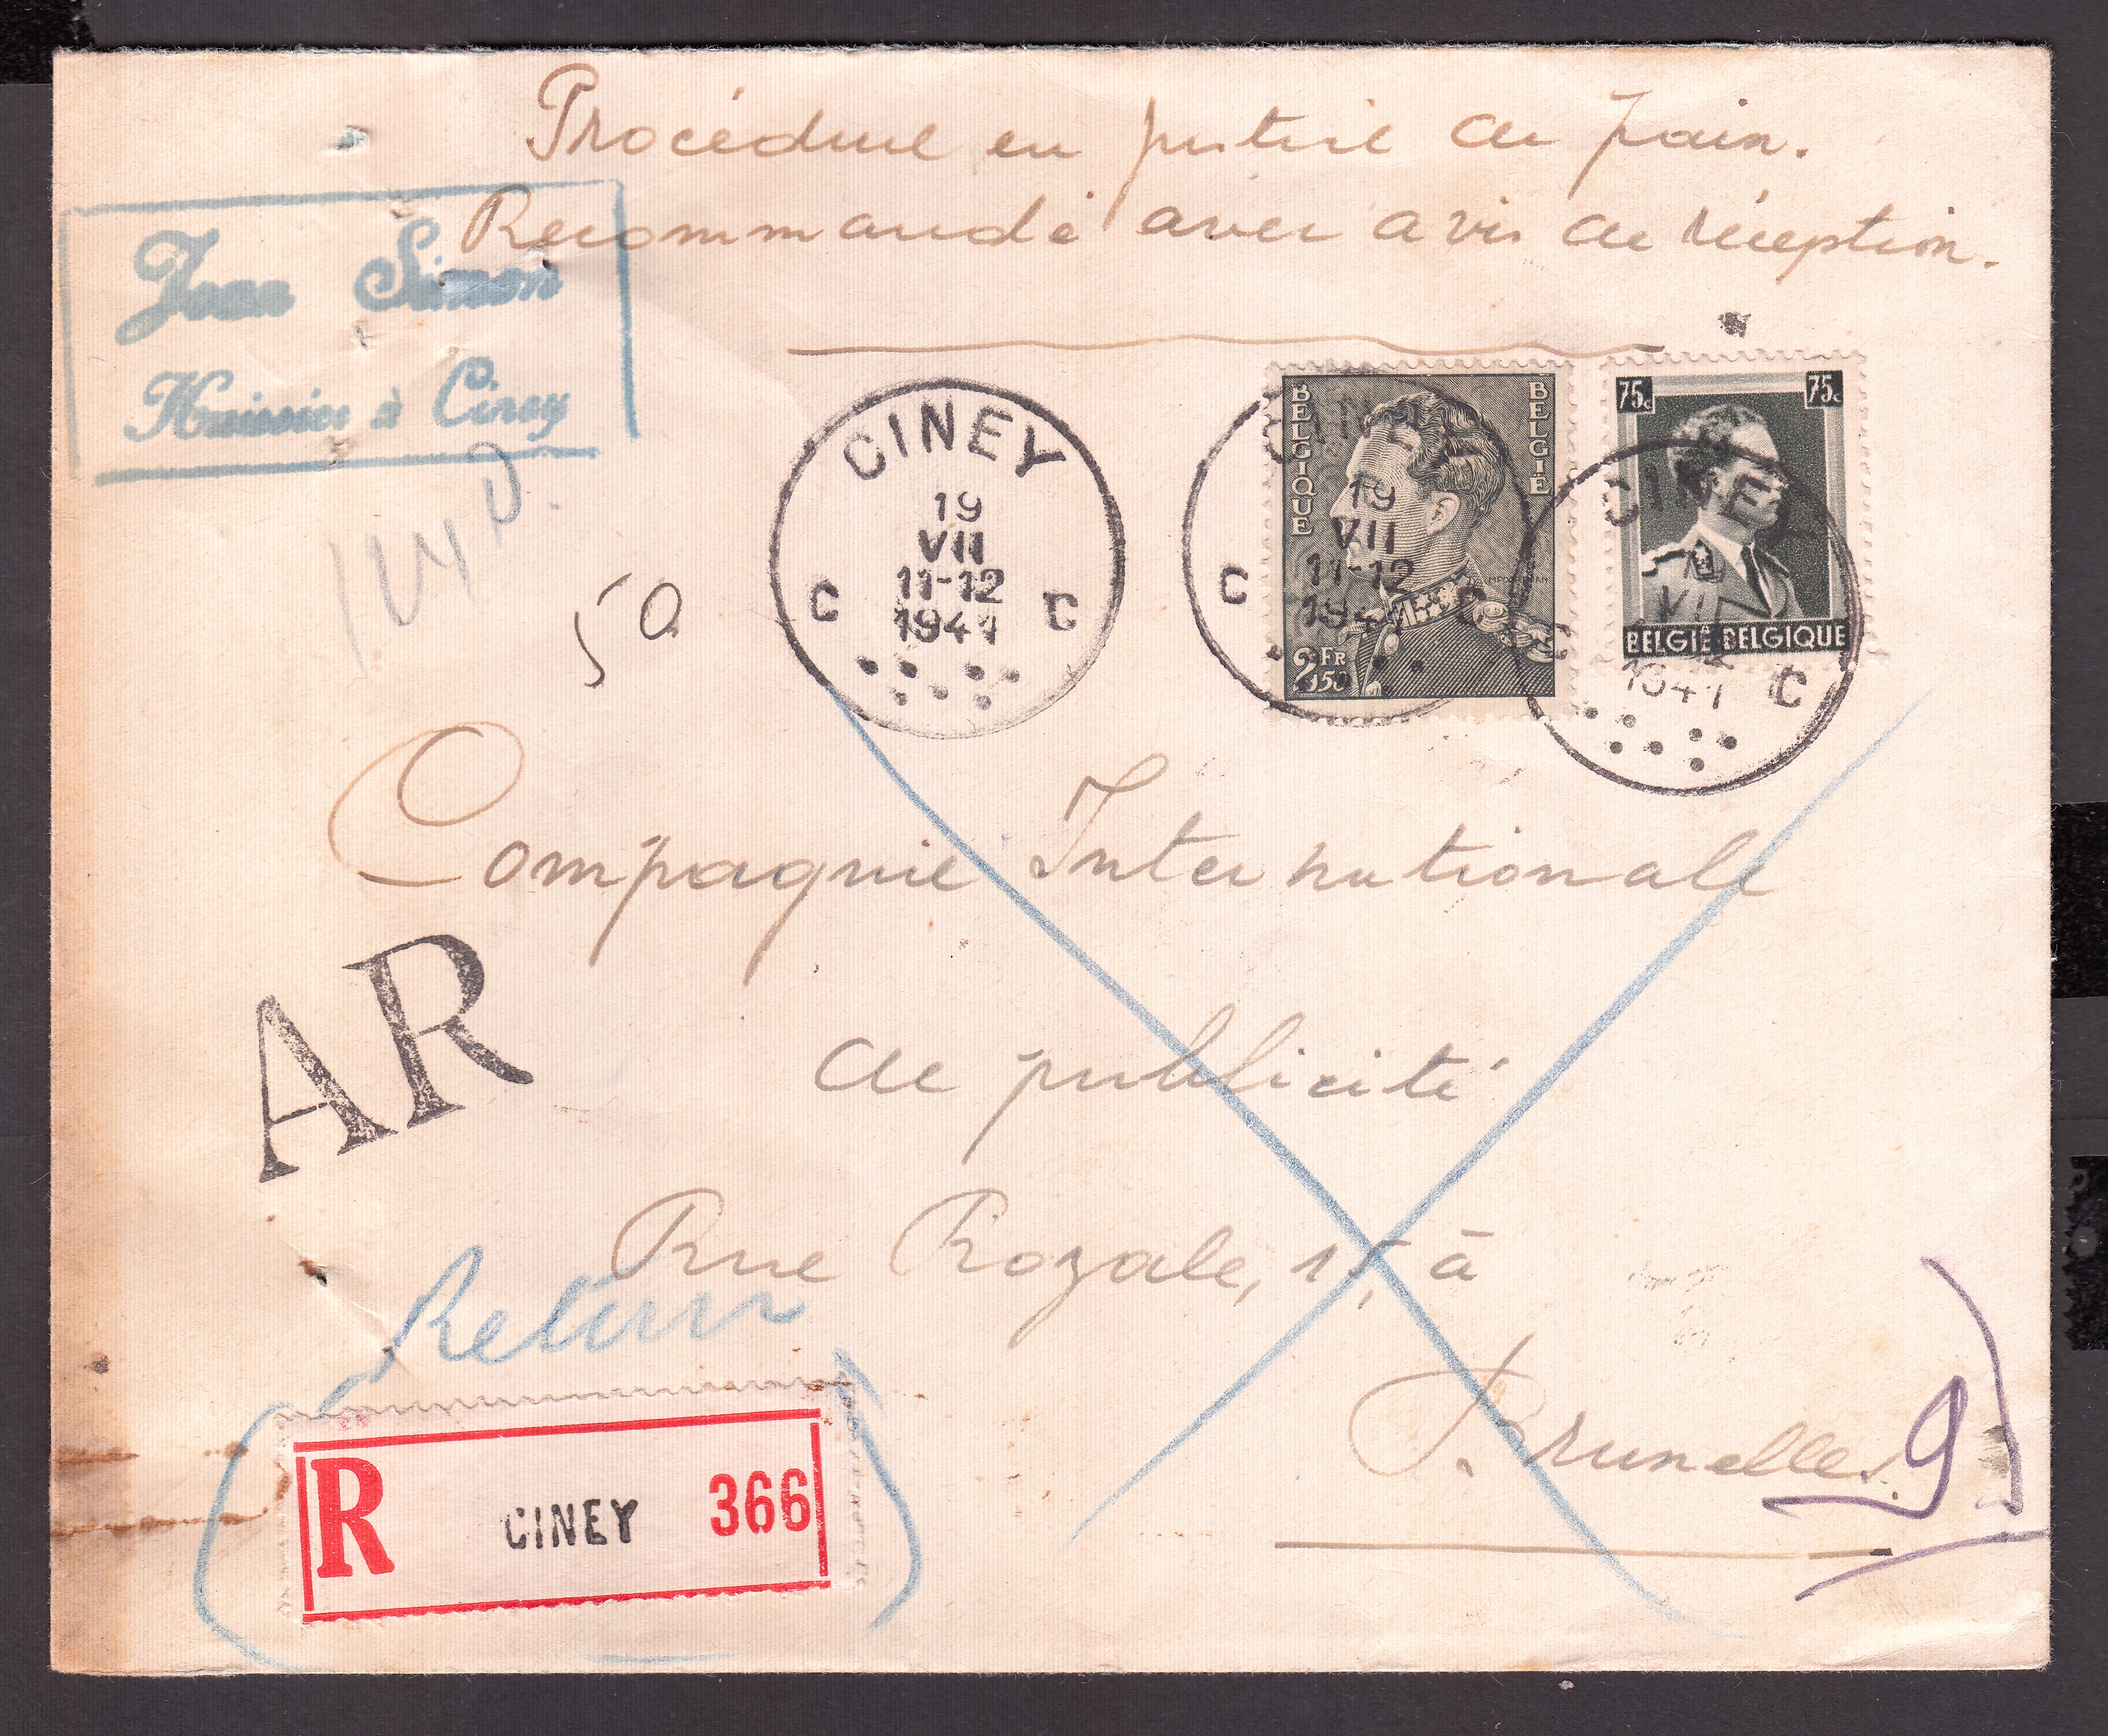 Procédure en justice de paix.
Recommandé avec avis de réception.
Jean Simon
Huissier à Ciney
CINEY
19
VII
11-12
1941
C C
BELGIQUE
BELGIË
19
VII
11-12
1941
C
2 FR 50
75c 75c
CINEY
VII
BELGIË BELGIQUE
1941 C
50
Compagnie Internationale
AR
de publicité
Rue Royale, 15, à
Retour
Bruxelles.
9
R CINEY 366